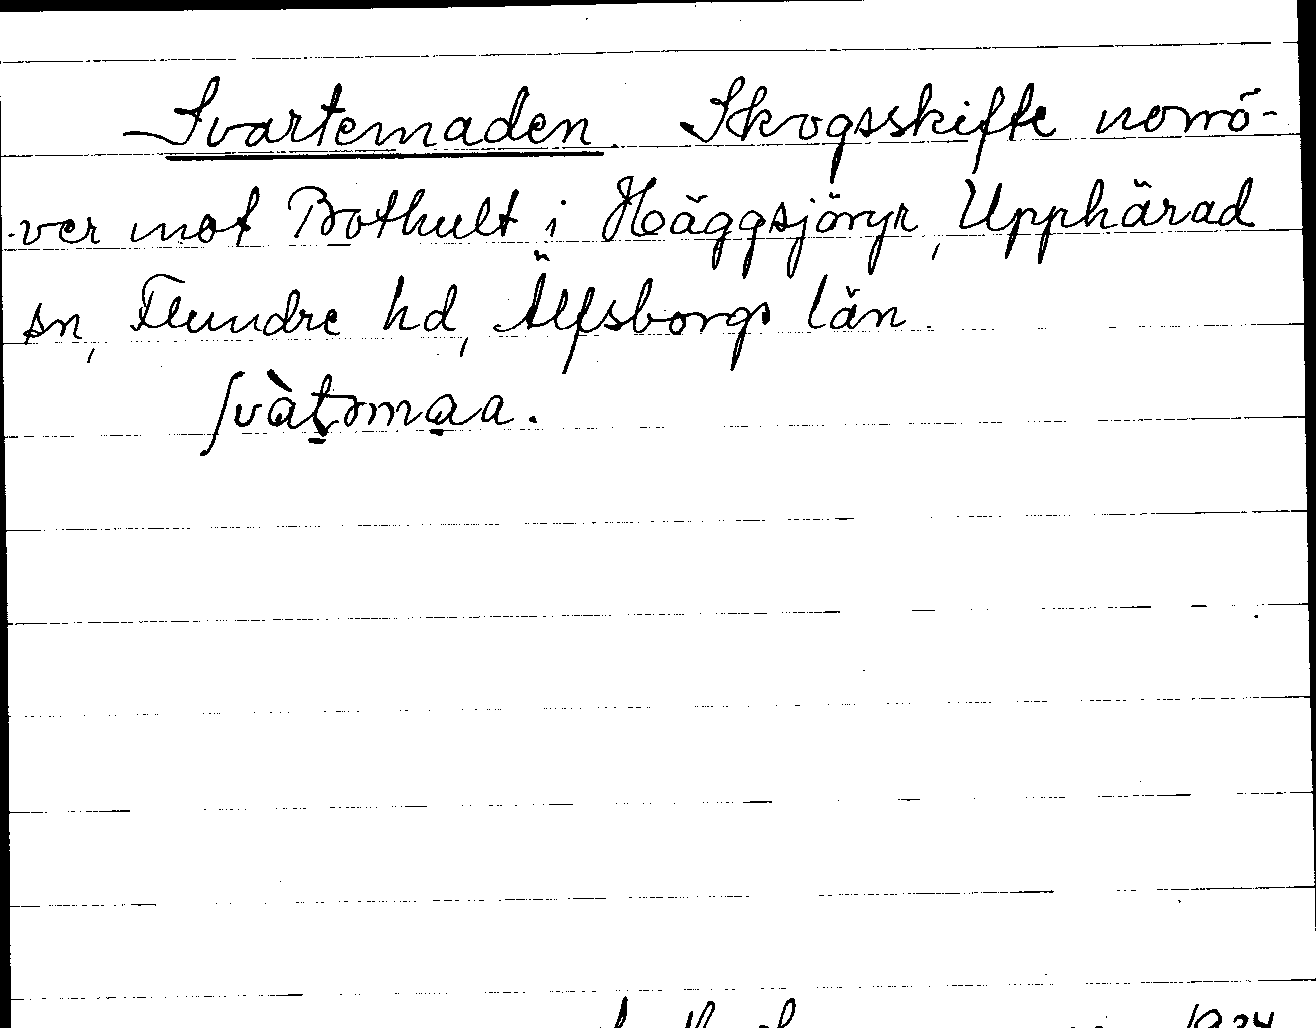 Svartemaden. Skogsskifte norrö-
ver mot Bothult i Häggsjöryr, Upphärad
sn, Flundre hd, Älfsborgs län.
ʃvàtəmaa.
1934